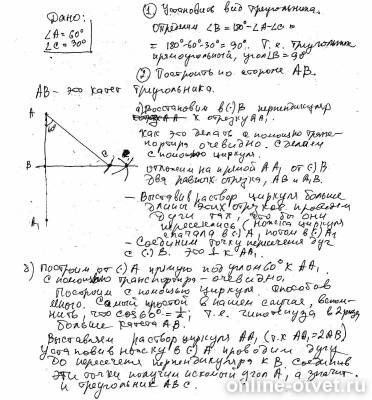 Дано:
∠A = 60°
∠C = 30°
① Установим вид треугольника.
Определим ∠B = 180° - ∠A - ∠C =
= 180° - 60° - 30° = 90°. Т.е. треугольник
прямоугольный, угол ∠B = 90°
② Построить по стороне AB.
AB - это катет треугольника.
а) Восстановим в (·) B перпендикуляр
к отрезку AA₁.
Как это делать с помощью транс-
портира очевидно. Сделаем
с помощью циркуля.
Отложим на прямой AA₁ от (·) B
два равных отрезка, AB и A₁B.
- Выставив раствор циркуля больше
длины этих отрезков проведем
дуги так, что бы они
пересеклись, ножка циркуля
сначала в (·) A, потом в (·) A₁
- Соединим точку пересечения дуг
с (·) B. Это ⊥ к AA₁
A
60°
B
C
A₁
б) Построим от (·) A прямую под углом 60° к AA₁
С помощью транспортира - очевидно.
Построим с помощью циркуля. Способов
много. Самый простой в нашем случае, вспом-
нить, что cos 60° = 1/2; т.е. гипотенуза в 2 раза
больше катета AB.
Выставляем раствор циркуля AA₁ (т.к AA₁ = 2AB)
Установив ножку в (·) A проводим дугу
до пересечения перпендикуляра к B. Соединив
эти точки получим искомый угол A, а значит
и треугольник ABC.
online-otvet.ru